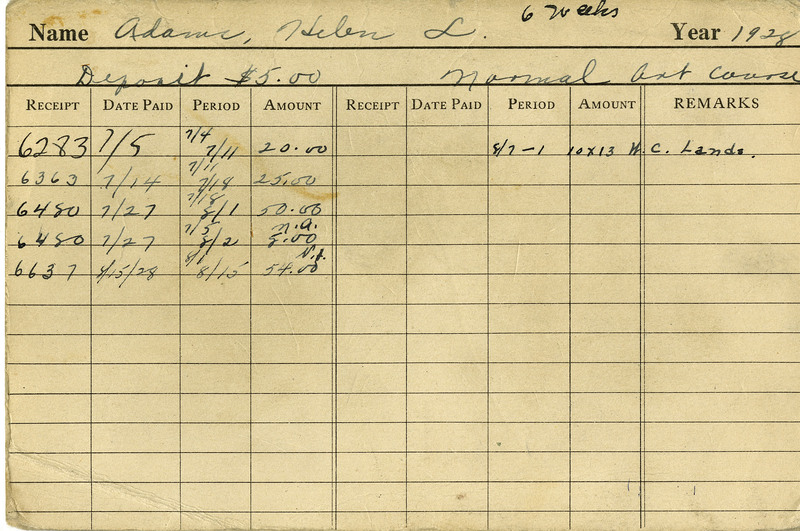 6 weeks
Name Adams, Helen L. Year 1928
Deposit $5.00 Normal Art Course
RECEIPT DATE PAID PERIOD AMOUNT RECEIPT DATE PAID PERIOD AMOUNT REMARKS
6283 7/5 7/4 7/11 20.00 8/7-1 10x13 W.C. Lands.
6363 7/14 7/11 7/18 25.00
6480 7/27 7/18 8/1 50.00
6480 7/27 7/5 8/2 n.a. 8.00
6637 8/15/28 8/1 8/15 54.00